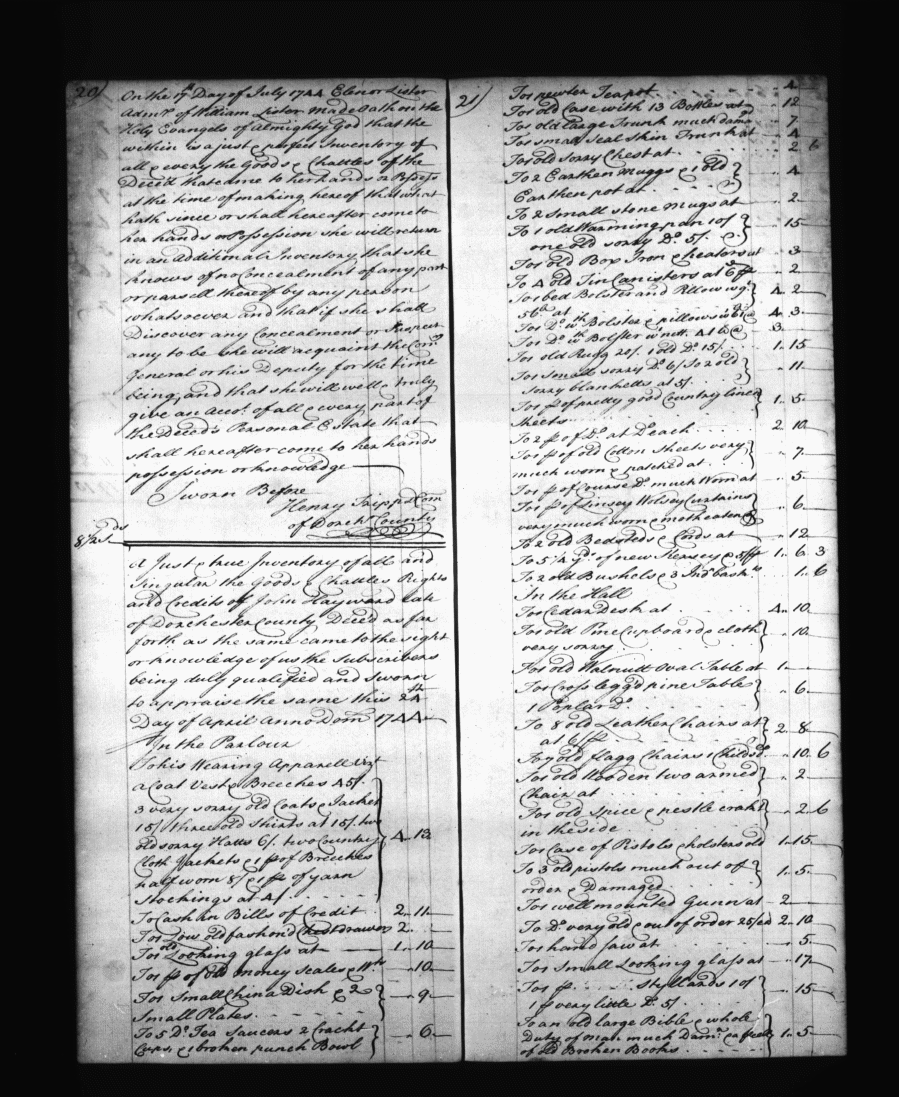 20)
On the 17th Day of July 1744 Elenor Lister
Admx of William Lister Made Oath on the
Holy Evangels of Almighty God that the
within is a just & perfect Inventory of
all & every the Goods & Chattles of the
Deced that came to her hands or Possess
at the time of making hereof that what
hath since or shall hereafter come to
her hands or Possession she will return
in an additional Inventory that she
knows of no Concealment of any part
or parcell thereof by any person
whatsoever and that if she shall
Discover any Concealment or Suspect
any to be she will acquaint the Comy
General or his Deputy for the time
being, and that she will well & truly
give an Acct. of all & every part of
the Deceds Personal Estate that
shall hereafter come to her hands
possession or knowledge
Sworn Before
Henry Tripp D Com
of Dorch County
A Just & true Inventory of all and
Singular the Goods & Chattles Rights
and Credits of John Hayward Late
of Dorchester County Deced as far
forth as the same came to the sight
or knowledge of us the Subscribers
being duly qualefied and sworn
to appraise the same this 24th
Day of April Anno Dom 1744
In the Parlour
To his Wearing Apparell Vizt
a Coat Vest & Breeches 45/.
3 very sorry old Coats & Jacket
15/. three old Shirts at 15/. two
old sorry Hatts 6/. two Country
Cloth Jackets & 1 pr of Breeches
half worn 8/ & 1 pr of yarn
Stockings at 4/ 4.. 13
To Cash in Bills of Credit 2.. 11
To 1 Low old fashond Chest drawers 2
To 1 old Looking glass at 1.. 10
To 1 pr of old money Scales & Wts .. 10
To 1 Small China Dish & 2
Small Plates .. 9
To 5 Do. Tea Saucers 2 Crackt
Cups & 1 broken punch Bowl .. 6
21)
To 1 pewter Teapot .. 4
To 1 old Case with 13 Bottles at .. 12
To 1 old large Trunk much damd .. 7
To 1 small Seal Skin Trunk at .. 4
To 1 old sorry Chest at .. 2 6
To 2 Earthen Muggs & 1 old
Earthen pot at .. 4
To 2 Small stone Mugs at .. 2
To 1 old Warming pan 10/
one old sorry Do. 5/. .. 15
To 1 old Box Iron & heaters at .. 3
To 4 old Tin Canisters at 6d p .. 2
To 1 bed Bolster and Pillow wg.
56 at 4 .. 2
To 1 Do. wth Bolster & pillows 4 .. 3
To 1 Do. wth Bolster 3
To 1 old Rugg 20/. 1 old Do. 15/. 1.. 15
To 1 Smaller sorry Do. 6/ To 2 old
sorry blanketts at 5/. .. 11
To 1 pr of pretty good Country linen
Sheets 1.. 5
To 2 pr of Do. at Do each 2.. 10
To 1 pr of old Cotton Sheets very
much worn & patched at .. 7
To 1 pr of Course Do. much Worn at .. 5
To 1 pr of Linsey Wolsey Curtains
very much worn & moth eaten .. 6
To 2 old Bedsteds & Cords at .. 12
To 5 1/4 yds of new Kersey 1.. 6 3
To 2 old Bushels & 3 Ind baskts 1.. 6
In the Hall
To 1 Cedar Desk at 4.. 10
To 1 old Pine Cupboard & cloth
very sorry .. 10
To 1 old Walnutt Oval Table at 1
To 1 Cross legg'd pine Table
1 Poplar Do. .. 6
To 8 old Leather Chairs at
at 6/ p 2.. 8
To 7 old flagg Chairs 1 Childs Do. .. 10 6
To 1 old Wooden two armed
Chair at .. 2
To 1 old Spice & pestle crakt
in the side .. 2 6
To 1 Case of Pistols & holsters old 1.. 15
To 3 old pistols much out of
order & Damaged 1.. 5
To 1 well mounted Gunn at 2
To 2 Do. very old & out of order 25/ea 2.. 10
To 1 hand saw at .. 5
To 1 Small Looking glass at .. 17
To 1 pr Stillards 10/
1 pr very little Do. 5/ .. 15
To an old large Bible & whole
Duty of Man much Damd & a parcell
of old Broken Books 1.. 5